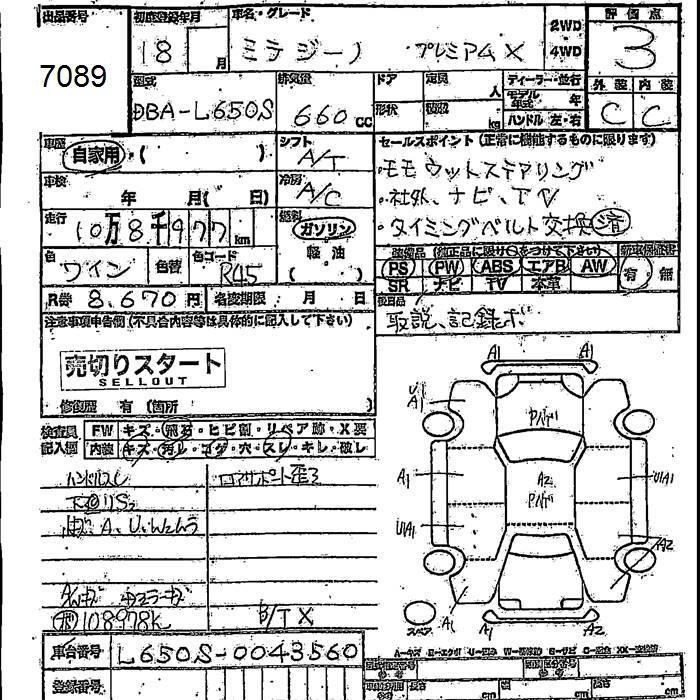 出品番号 初度登録年月 車名・グレード 2WD 評価点
7089 18 月 ミラジーノ プレミアムX 4WD 3
型式 排気量 ドア 定員 人 ディーラー・並行 外装 内装
DBA-L650S 660cc 形状 積載 kg モデル年式 年 ハンドル 左・右 C C
車歴 自家用 ( ) シフト A/T セールスポイント (正常に機能するものに限ります)
車検 年 月( 日) 冷房 A/C ・モモウッドステアリング
・社外、ナビ、TV
走行 10万8千977km 燃料 ガソリン ・タイミングベルト交換済
軽油
色 ワイン 色替 色コード R45 ( )
装備品 (純正品に限り○をつけて下さい) 新車保証書
PS PW ABS エアB AW 有 無
SR ナビ TV 本革
R券 8,670円 名変期限 月 日
後日品
取説、記録ボ
注意事項申告欄 (不具合内容等は具体的に記入して下さい)
売切りスタート
SELLOUT
修復歴 有 (箇所 )
検査員 FW キズ・飛石・ヒビ割・リペア跡・X要
記入欄 内装 キズ・汚レ・コゲ・穴・スレ・キレ・破レ
ハンドルスレ
下回りS
A1 A1
U A1
Pハゲ
A1 A2 U1A1
Pハゲ
U1A1
A2
スペア A1 A1 A2
108978K B/TX
車台番号 L650S-0043560
登録番号